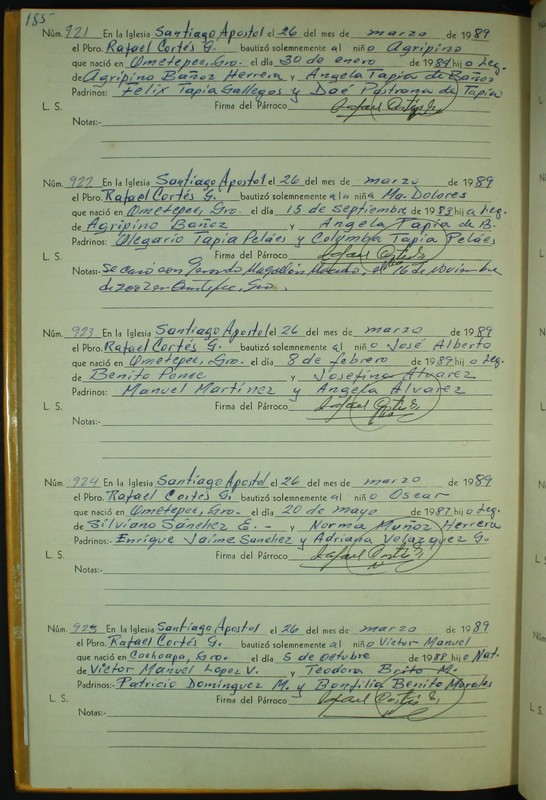 185
Núm. 921 En la Iglesia Santiago Apostol el 26 del mes de marzo de 1989
el Pbro. Rafael Cortés G. bautizó solemnemente al niño Agripino
que nació en Ometepec, Gro. el día 30 de enero de 1989 hijo Leg.
de Agripino Bañoz Herrera y Angela Tapia de Bañoz
Padrinos: Felix Tapia Gallegos y Doé Pastrana de Tapia
L. S. Firma del Párroco Rafael Cortés G.
Notas:-
Núm. 922 En la Iglesia Santiago Apostol el 26 del mes de marzo de 1989
el Pbro. Rafael Cortés G. bautizó solemnemente a la niña Ma. Dolores
que nació en Ometepec, Gro. el día 15 de septiembre de 1983 hija Leg.
de Agripino Bañoz y Angela Tapia de B.
Padrinos: Olegario Tapia Peláes y Columba Tapia Peláes
L. S. Firma del Párroco Rafael Cortés G.
Notas:- Se casó con el 16 de Noviembre
de en Ometepec, Gro.
Núm. 923 En la Iglesia Santiago Apostol el 26 del mes de marzo de 1989
el Pbro. Rafael Cortés G. bautizó solemnemente al niño José Alberto
que nació en Ometepec, Gro. el día 8 de febrero de 1989 hijo Leg.
de Benito Ponce y Josefina Alvarez
Padrinos: Manuel Martínez y Angela Alvarez
L. S. Firma del Párroco Rafael Cortés G.
Notas:-
Núm. 924 En la Iglesia Santiago Apostol el 26 del mes de marzo de 1989
el Pbro. Rafael Cortés G. bautizó solemnemente al niño Oscar
que nació en Ometepec, Gro. el día 20 de mayo de 1987 hijo Leg.
de Silviano Sánchez E. - y Norma Muñoz Herrera
Padrinos:- Enrique Jaime Sanchez y Adriana Velazquez G.
L. S. Firma del Párroco Rafael Cortés G.
Notas:-
Núm. 925 En la Iglesia Santiago Apostol el 26 del mes de marzo de 1989
el Pbro. Rafael Cortés G. bautizó solemnemente al niño Victor Manuel
que nació en Cochoapa, Gro. el día 5 de octubre de 1988 hijo Nat.
de Victor Manuel Lopez V. y Teodora Brito M.
Padrinos:- Patricio Dominguez M. y Bonfilia Benito Morales
L. S. Firma del Párroco Rafael Cortés G.
Notas:-